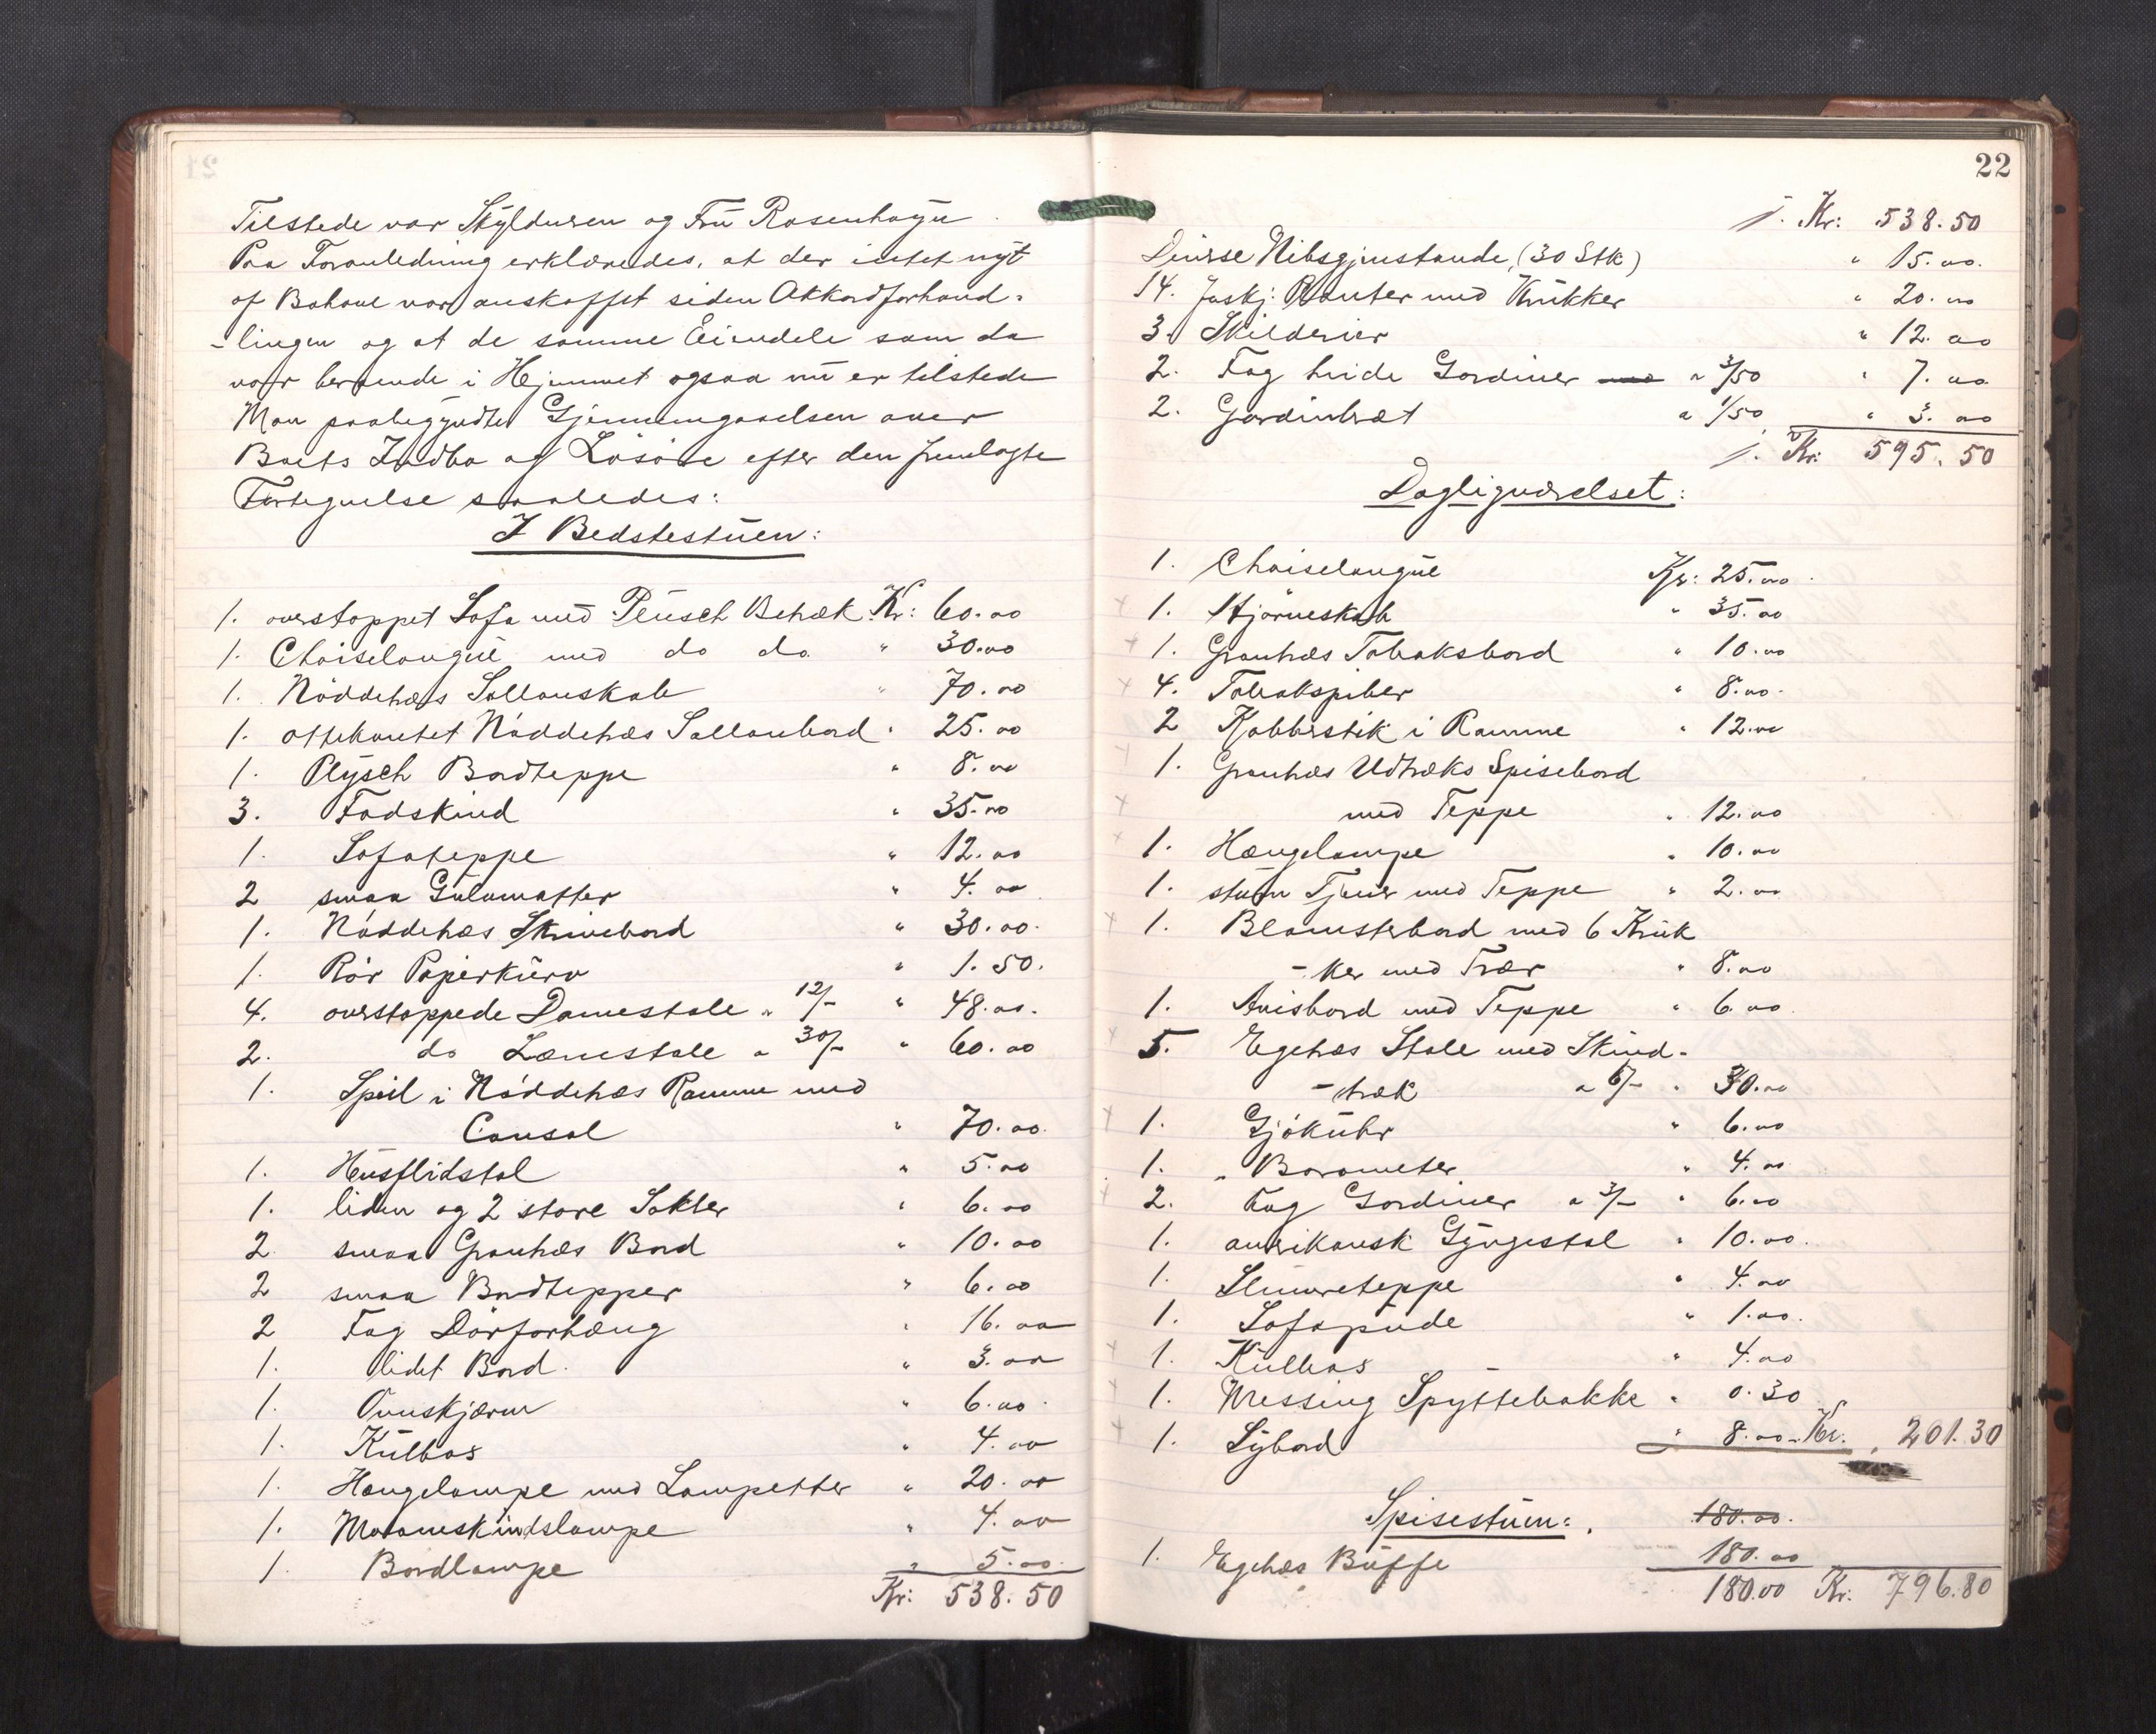 Tilstede var Skyldneren og Frü Rosenhayn.
Paa Foranledning erklæredes, at der intet nyt
af Bohave var anskaffet siden Akkordforhand-
-lingen og at de samme Eiendele som da
var beroende i Hjemmet ogsaa nü er tilstede
Man paabegyndte Gjennemgaaelsen over
Boets Indbo og Løsøre efter den fremlagte
Fortegnelse saaledes:
I Bedstestüen:
1. overstoppet Sofa med Plüsch Betræk. Kr: 60.00
1. Chaiselongüe med do do " 30.00
1. Nøddetræs Sallonskab " 70.00
1. ottekantet Nøddetræs Sallonbord " 25.00
1. Plysch Bordteppe " 8.00
3. Fodskind " 35.00
1. Sofateppe " 12.00
2 smaa Gulvmatter " 4.00
1. Nøddetræs Skrivebord " 30.00.
1. Rör Papirkürv " 1.50.
4. overstoppede Damestole a 12/- " 48.00.
2. do Lænestole a 30/- " 60.00
1. Speil i Nøddetræs Ramme med
Consol " 70.00.
1. Hüsflidstol " 5.00
1. liden og 2 store Sokler " 6.00
2 smaa Grantræs Bord " 10.00
2 smaa Bordtepper " 6.00
2 Fag Dörforhæng " 16.00
1. lidet Bord. " 3.00
1. Ovnskjærm " 6.00.
1. Külbox " 4.00
1. Hængelampe med Lampetter " 20.00
1. Maraneskindslampe " 4.00
1. Bordlampe " 5.00.
Kr: 538.50
22
Kr: 538.50
Diverse Nibsgjenstande, (30 Stk) " 15.00.
14. Planter med Krükker " 20.00
3. Skilderier " 12.00
2. Fag hvide Gardiner a 3/50 " 7.00
2. Gardinbræt a 1/50 " 3.00
Kr: 595.50
Dagligværelset:
1. Chaiselongüe Kr: 25.00.
1. Hjørneskab " 35.00
1. Grantræs Tobaksbord " 10.00
4. Tobakspiber " 8.00.
2 Kobberstik i Ramme " 12.00
1. Grantræs Udtræks Spisebord
med Teppe " 12.00
1. Hængelampe " 10.00
1. stüm Tjener med Teppe " 2.00
1. Blomsterbord med 6 Krük
-ker med Trær " 8.00
1. Avisbord med Teppe " 6.00.
5. Egetræs Stole med Skind-
-træk a 6/- " 30.00
1. Gjökühr " 6.00
1. " Barometer " 4.00
2. Fag Gardiner a 3/- " 6.00
1. amerikansk Gyngestol " 10.00.
1. Slümreteppe " 4.00
1. Sofapüde " 1.00.
1. Külbox " 4.00
1. Messing Spyttebakke " 0.30
1. Sybord " 8.00 Kr. 201.30
Spisestüen:
180.00.
1. Egetræs Büffe 180.00
180.00 Kr. 796.80